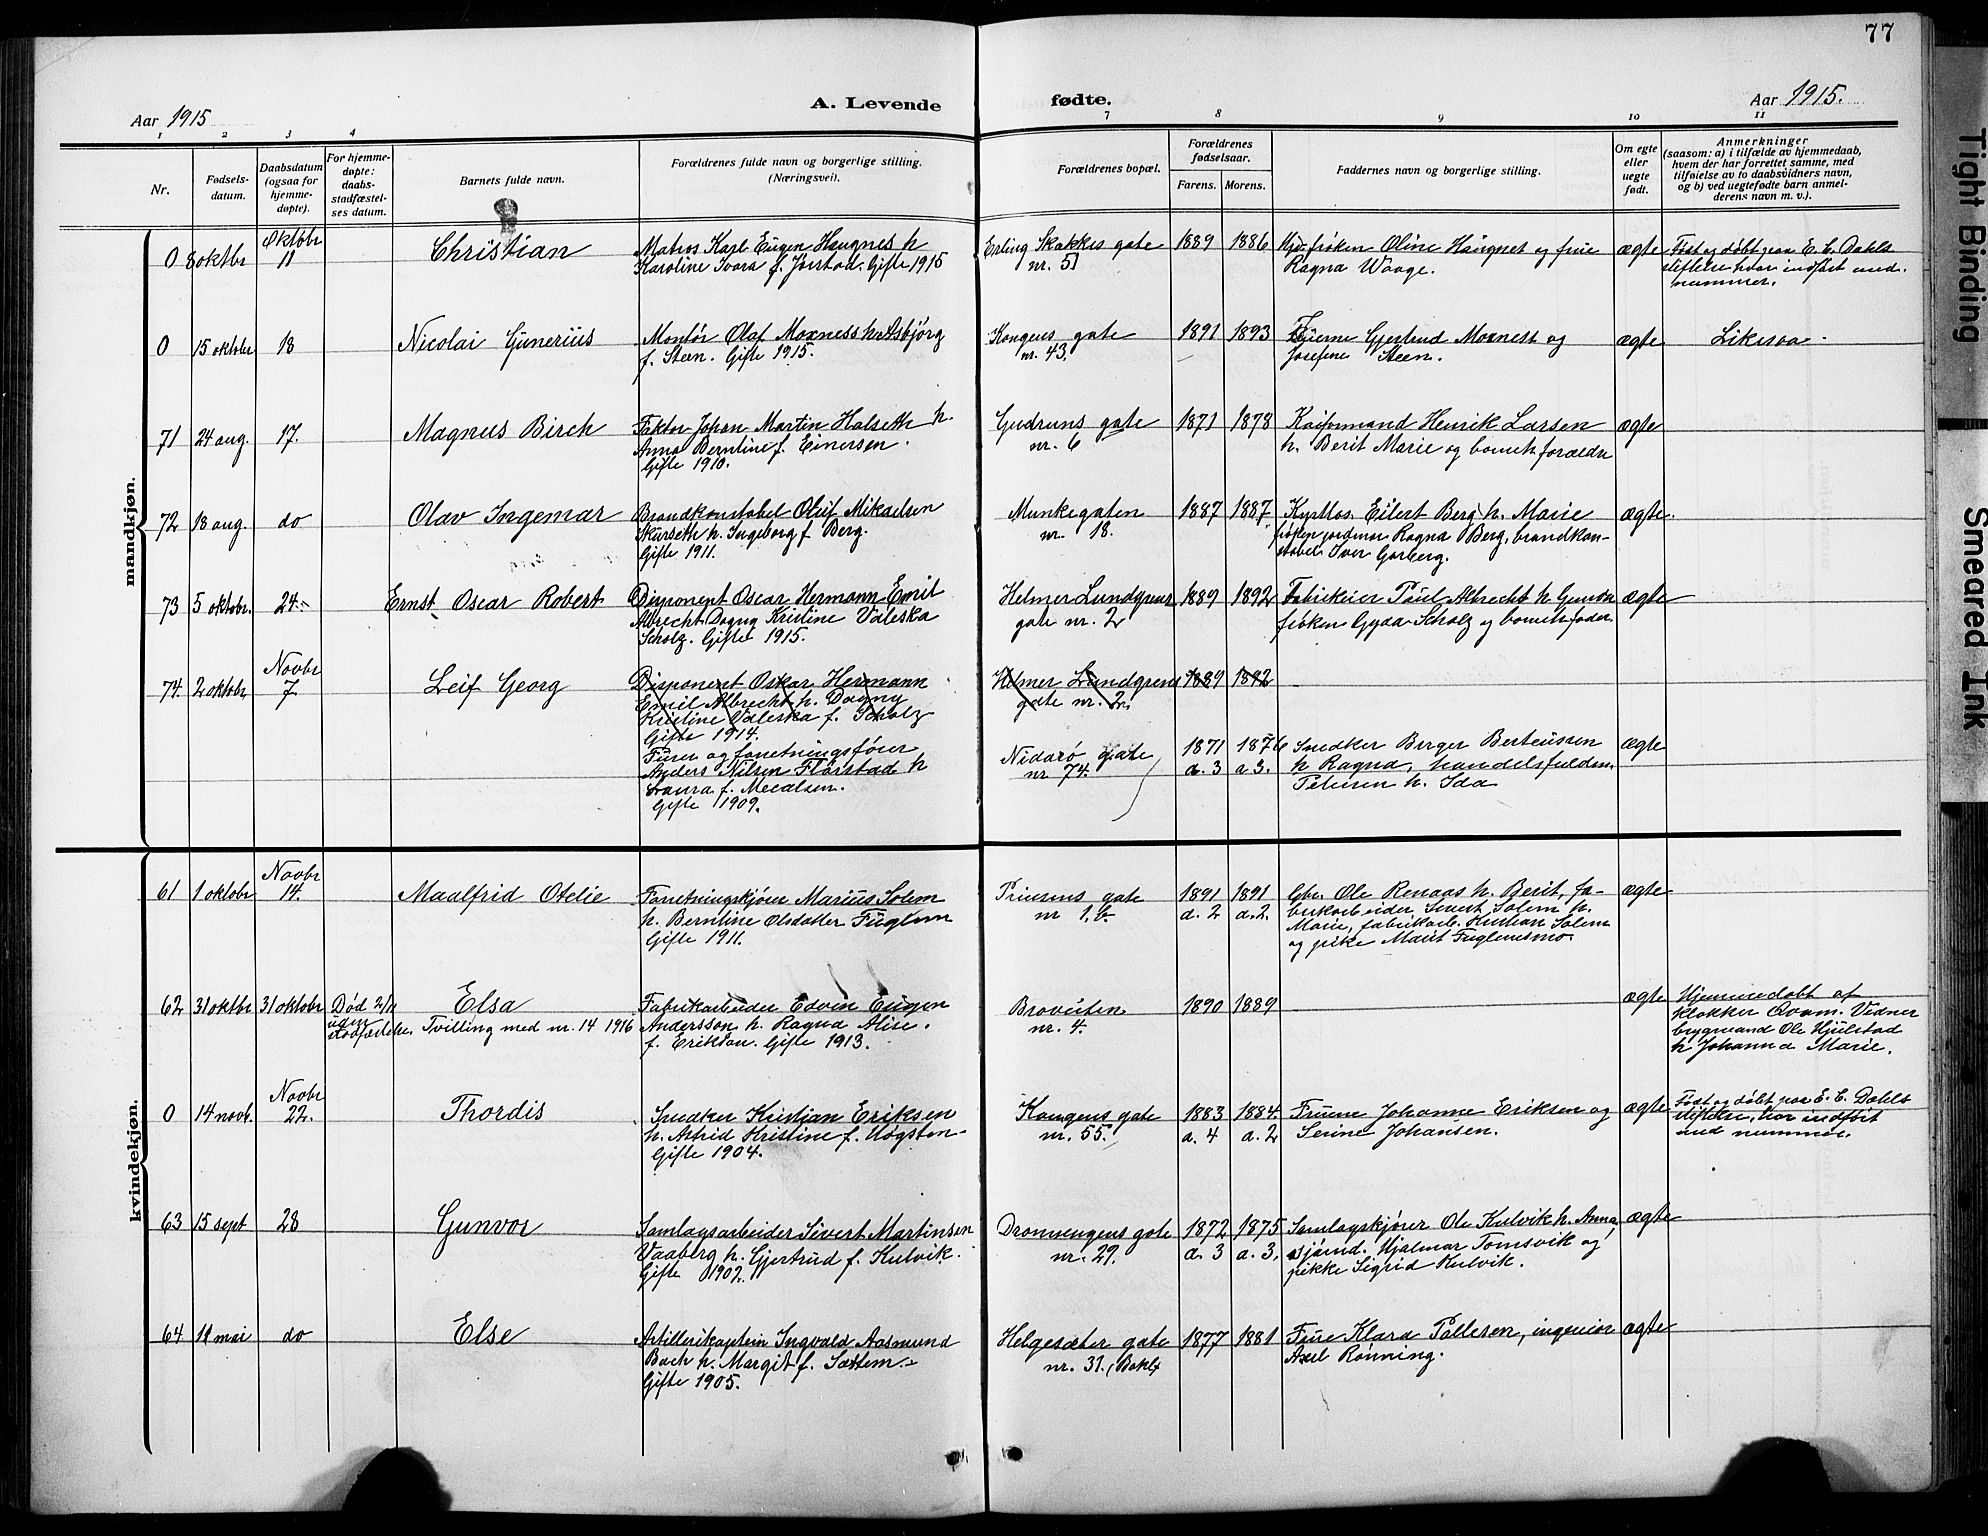 77
A. Levende fødte.
Aar 1915
Aar 1915.
1 2 3 4 7 8 9 10 11
Nr.
Fødsels-
datum.
Daabsdatum
(ogsaa for
hjemme-
døpte).
For hjemme-
døpte:
daabs-
stadfæstel-
ses datum.
Barnets fulde navn.
Forældrenes fulde navn og borgerlige stilling.
(Næringsvei).
Forældrenes bopæl.
Forældrenes
fødselsaar.
Farens. Morens.
Faddernes navn og borgerlige stilling.
Om egte
eller
uegte
født.
Anmerkninger
(saasom: a) i tilfælde av hjemmedaab,
hvem der har forrettet samme, med
tilføielse av to daabsvidners navn,
og b) ved uegtefødte barn anmel-
derens navn m. v.).
mandkjøn.
0 8 oktbr Oktobr 11 Christian
Matros Karl Eugen Haugnes h
Karoline Ivara f. Jørstad. Gifte 1915
Erling Skakkes gate
nr. 51
1889 1886
frøken Oline Haugnes og frue
Ragna Waage.
ægte
Født og døbt paa E. C. Dahls
stiftelse hvor indført med
nummer.
0 15 oktobr 18 Nicolai Gunerius
Montør Olaf Moxness h Asbjørg
f. Steen. Gifte 1915.
Kongens gate
nr. 43.
1891 1893
Fruerne Gjertrud Moxness og
Josefine Steen.
ægte
Likesaa.
71 24 aug. 17. Magnus Birch
Faktor Johan Martin Halseth h.
Anna Berntine f. Einersen.
Gifte 1910.
Gudruns gate
nr. 6
1871 1878
Kaiformand Henrik Larsen
h. Berit Marie og barnets forældre
ægte
72 18 aug. do Olav Ingemar
Brandkonstabel Oluf Mikaelsen
Skarseth h. Ingeborg f. Berg.
Gifte 1911.
Munkegaten
nr. 18.
1887 1887
Eilert Berg h. Marie
frøken jordmor Ragna Berg, brandkon-
stabel Iver Garberg.
ægte
73 5 oktobr. 24. Ernst Oscar Robert
Disponent Oscar Hermann Emil
Albrecht Dagny Kristine Valeska
Scholz. Gifte 1915.
Helmer Lundgrens
gate nr. 2
1889 1892
Fabrikeier Paul Albrecht h
frøken Gyda Scholz og barnets fader
ægte
74. 2 oktobr Novbr 7 Leif Georg
Disponent Oskar Hermann
Emil Albrecht h. Dagny
Kristine Valeska f. Scholz
Gifte 1914.
Helmer Lundgrens
gate nr. 2.
1889 1892
og forretningsfører
Anders Nilsen Flørstad h
Laura f. Mecalsen.
Gifte 1909.
Nidarø gate
nr 74.
1871
a. 3
1876
a 3.
Snedker Berger Berteussen
h Ragna, handelsfuldm.
Petersen h. Ida
ægte
kvindekjøn.
61 1 oktobr Novbr 14. Maalfrid Otelie
Forretningskjører Marius Solem
h. Berntine Olsdatter Fuglem
Gifte 1911.
Prinsens gate
nr 1. b
1891
a. 2
1891
a. 2.
Gbr. Ole Renaas h. Berit, fa-
brikarbeider Sivert Solem h.
Marie, fabrikarb. Kristian Solem
og pike Marit Fuglemsmo.
ægte
62 31 oktbr 31 oktobr
Død 2/11
uden
stadfæstelse.
Elsa
Tvilling med nr. 14 1916
Fabrikarbeider Edvin Eugen
Andersson h. Ragna Alise.
f. Erikson. Gifte 1913.
Braveiten
nr. 4.
1890 1889
ægte
Hjemmedøbt af
klokker Avam. Vidner
bygmeand Ole Hjulstad
h Johanna Marie.
0 14 novb. Novbr 22. Thordis
Snedker Kristian Eriksen
h. Astrid Kristine f. Høgsten
Gifte 1904.
Kongens gate
nr. 55.
1883
a. 4
1884.
a. 2
Fruene Johanne Eriksen og
Serine Johansen.
ægte
Født og døbt paa E. C. Dahls
stiftelse, hvor indført
med nummer.
63 15 sept 28 Gunvor
Samlagsarbeider Sivert Martinsen
Vaaberg h. Gjertrud f. Kulvik.
Gifte 1902.
Dronningens gate
nr. 29.
1872
a. 3
1875
a. 3.
Samlagskjører Ole Kulvik h. Anna
sjømd. Hjalmar Tomsvik og
pikke Sigrid Kulvik.
ægte
64 11 mai do Else
Artillerikaptein Ingvald Aasmund
Bach h. Margit f. Sættem
Gifte 1905.
Helgesæter gate
nr. 31. (Bakl.
1877 1881
Frue Klara Pallesen, ingeniør
Axel Rønning.
ægte
Tight Binding
Smeared Ink